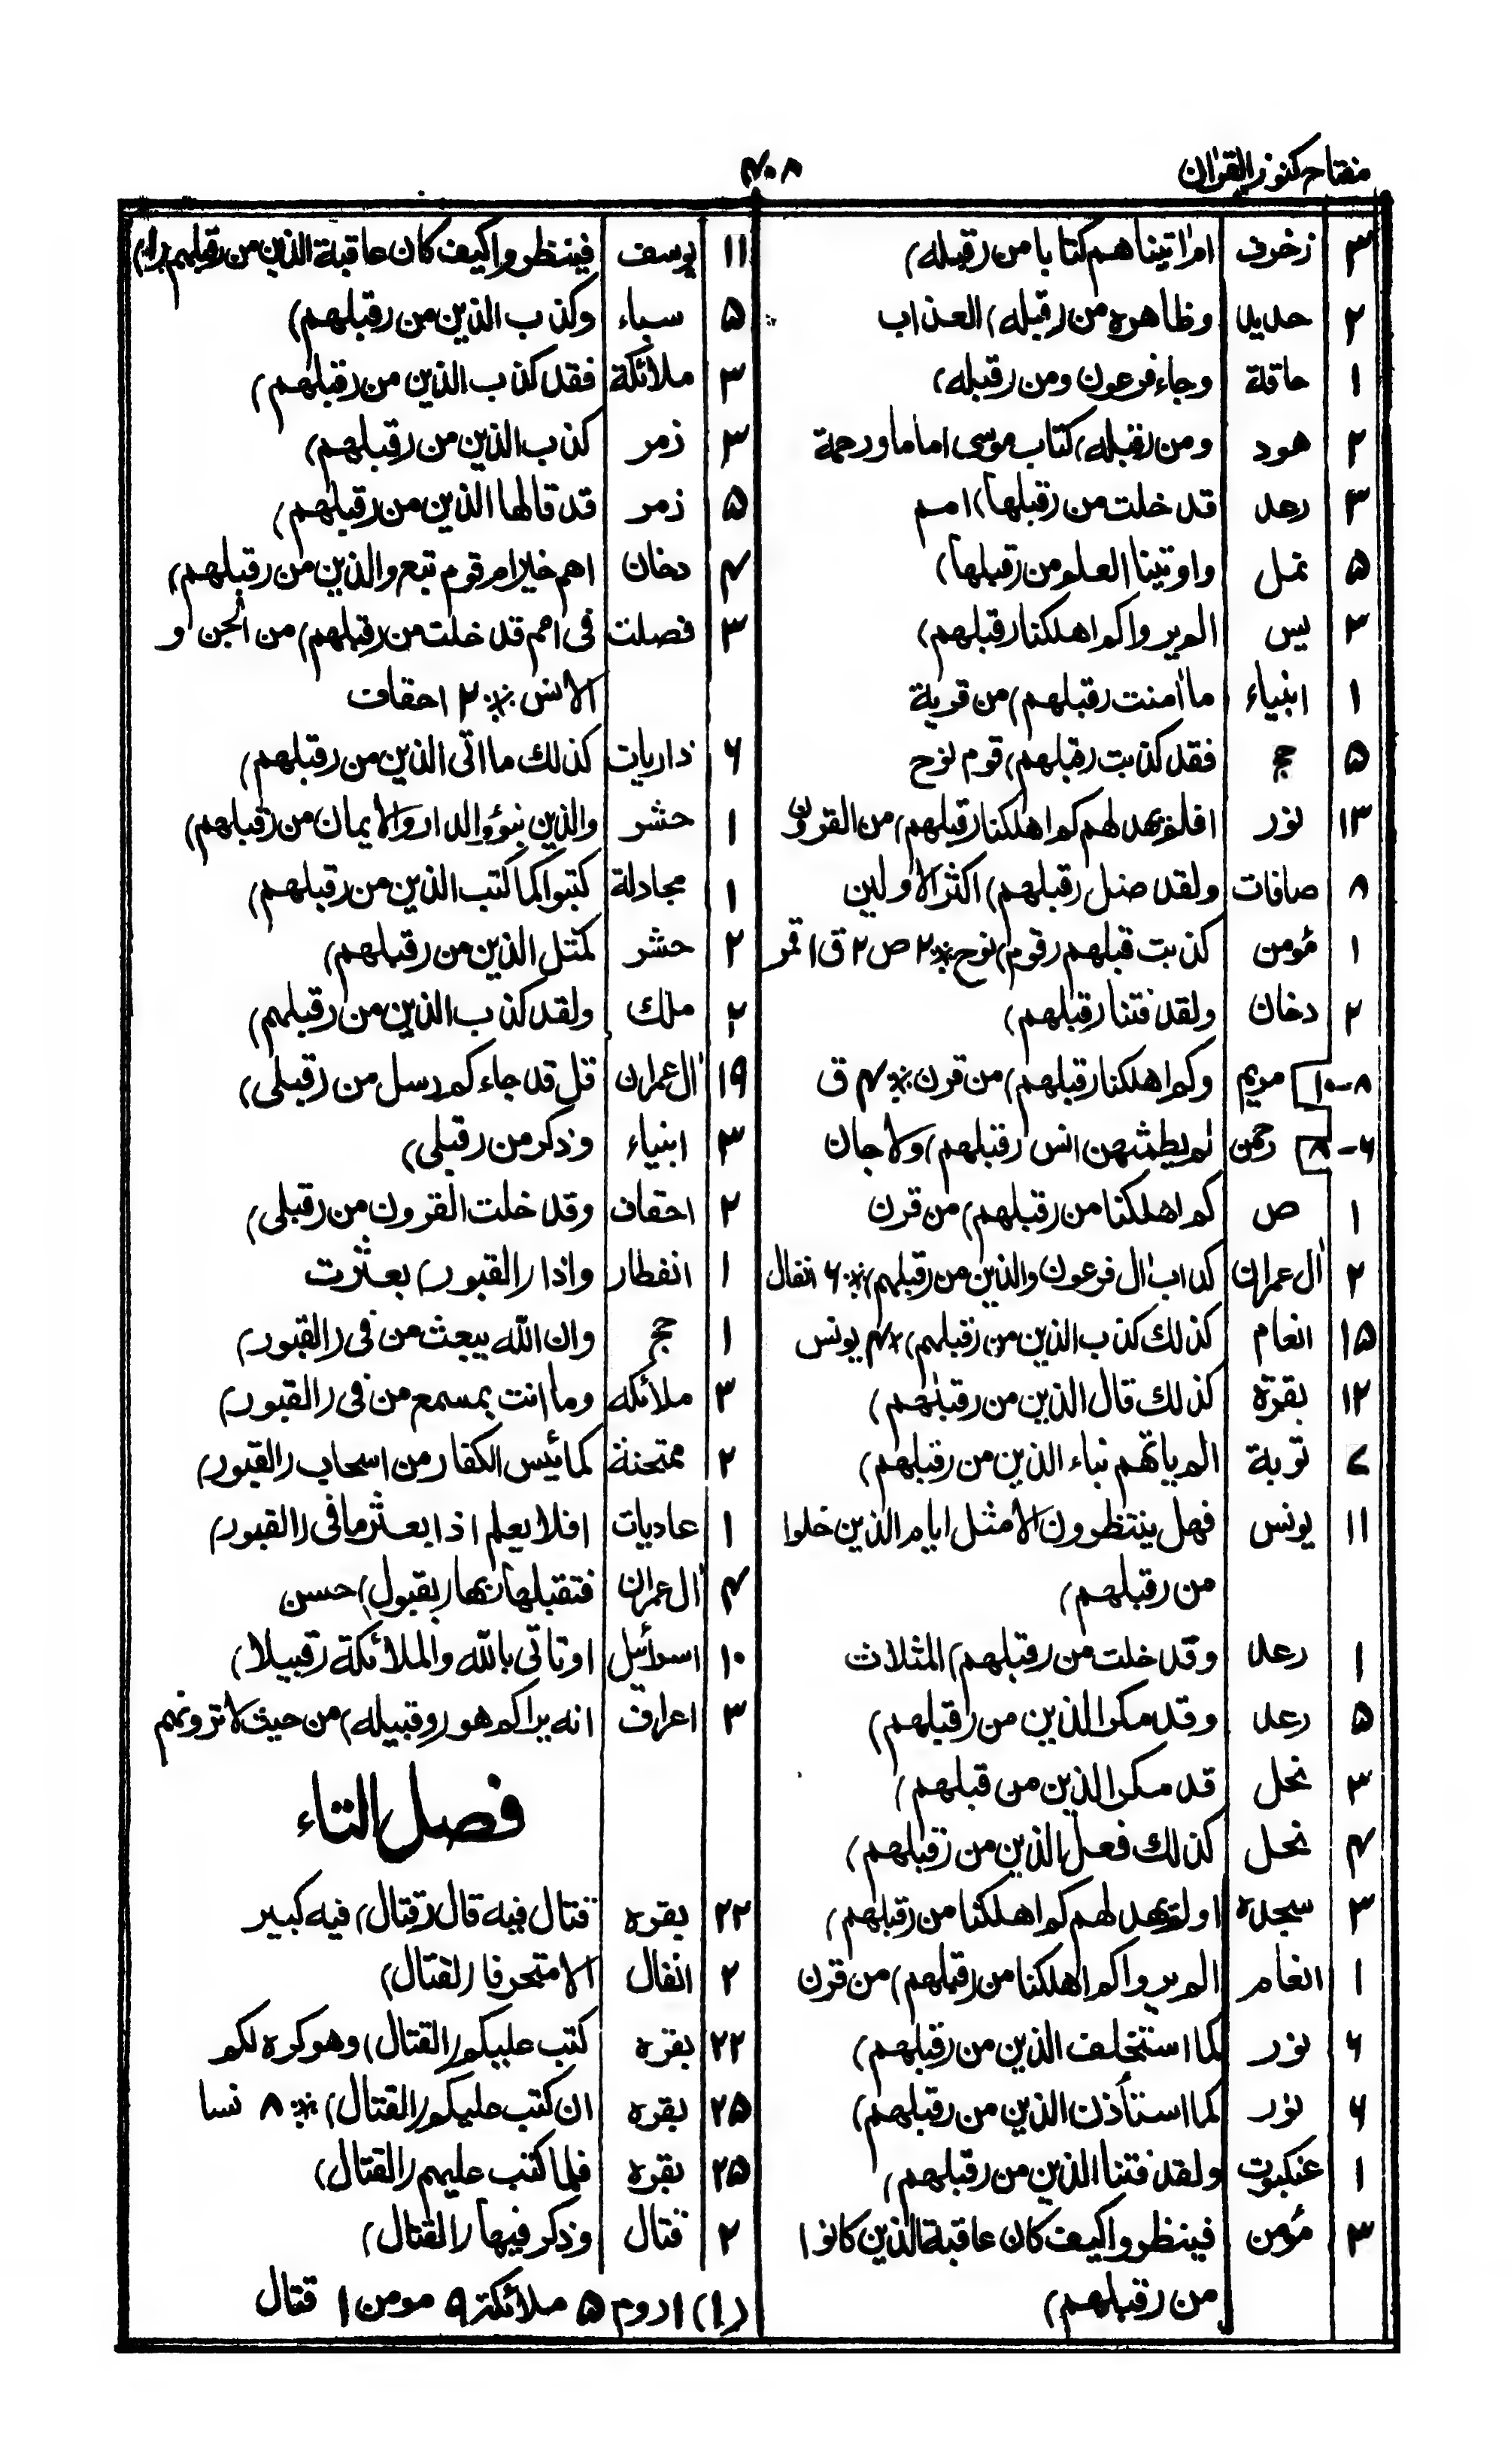 مفتاح كنوز القرآن
۴۰۸
۳ زخرف ام اٰتيناهم كتابا من (قبله)
۲ حديد وظاهره من (قبله) العذاب
۱ حاقة وجاء فرعون ومن (قبله)
۲ هود ومن (قبله) كتاب موسى اماما ورحمة
۳ رعد قد خلت من (قبلها) امم
۵ نمل واوتينا العلم من (قبلها)
۳ يس الم يروا كم اهلكنا (قبلهم)
۱ انبياء ما اٰمنت (قبلهم) من قرية
۵ حج فقد كذبت (قبلهم) قوم نوح
۱۳ نور افلم يهد لهم كم اهلكنا (قبلهم) من القرون
۸ صافات ولقد ضل (قبلهم) اكثر الاولين
۱ مؤمن كذبت قبلهم (قوم) نوح ※ ۲ ص ۲ ق ۱ قمر
۲ دخان ولقد فتنا (قبلهم)
۸-۱۰ مريم وكم اهلكنا (قبلهم) من قرن ※ ۴ ق
۶-۸ رحمن لم يطمثهن انس (قبلهم) ولا جان
۱ ص كم اهلكنا من (قبلهم) من قرن
۲ اٰل عمران كداب اٰل فرعون والذين من (قبلهم) ※ ۶ انفال
۱۵ انعام كذلك كذب الذين من (قبلهم) ※ ۴ يونس
۱۲ بقرة كذلك قال الذين من (قبلهم)
۷ توبة الم ياتهم نباء الذين من (قبلهم)
۱۱ يونس فهل ينتظرون الا مثل ايام الذين خلوا
من (قبلهم)
۱ رعد وقد خلت من (قبلهم) المثلات
۵ رعد وقد مكر الذين من (قبلهم)
۳ نحل قد مكر الذين من قبلهم)
۴ نحل كذلك فعل الذين من (قبلهم)
۳ سجدہ اولم يهد لهم كم اهلكنا من (قبلهم)
۱ انعام الم يروا كم اهلكنا من (قبلهم) من قرن
۶ نور كما استخلف الذين من (قبلهم)
۶ نور كما استأذن الذين من (قبلهم)
۱ عنكبوت ولقد فتنا الذين من (قبلهم)
۳ مؤمن فينظروا كيف كان عاقبة الذين كانوا
من (قبلهم)
۱۱ يوسف فينظروا كيف كان عاقبة الذين من (قبلهم) (۱)
۵ سباء وكذب الذين من (قبلهم)
۳ ملائكة فقد كذب الذين من (قبلهم)
۳ زمر كذب الذين من (قبلهم)
۵ زمر قد قالها الذين من (قبلهم)
۴ دخان اهم خير ام قوم تبع والذين من (قبلهم)
۳ فصلت فى امم قد خلت من (قبلهم) من الجن و
الانس ※ ۲ احقاف
۶ ذاريات كذلك ما اتى الذين من (قبلهم)
۱ حشر والذين تبوؤ الدار والايمان من (قبلهم)
۱ مجادلة كبتوا كما كبت الذين من (قبلهم)
۲ حشر كمثل الذين من (قبلهم)
۲ ملك ولقد كذب الذين من (قبلهم)
۱۹ اٰل عمران قل قد جاءكم رسل من (قبلى)
۳ انبياء وذكر من (قبلى)
۲ احقاف وقد خلت القرون من (قبلى)
۱ انفطار واذا (القبور) بعثرت
۱ حج وان الله يبعث من فى (القبور)
۳ ملائكه وما انت بمسمع من فى (القبور)
۲ ممتحنة كما يئس الكفار من اصحاب (القبور)
۱ عاديات افلا يعلم اذا بعثر ما فى (القبور)
۴ اٰل عمران فتقبلها ربها (بقبول) حسن
۱۰ اسرائيل او تاتى بالله والملائكة (قبيلا)
۳ اعراف انه يراكم هو (وقبيله) من حيث لا ترونهم
فصل التاء
۲۲ بقره قتال فيه قال (قتال) فيه كبير
۲ انفال الا متحرفا (لقتال)
۲۲ بقره كتب عليكم (القتال) وهو كره لكم
۲۵ بقره ان كتب عليكم (القتال) ※ ۸ نسا
۲۵ بقره فلما كتب عليهم (القتال)
۲ قتال وذكر فيها (القتال)
(۱) ۱ روم ۵ ملائكة ۹ مومن ۱ قتال